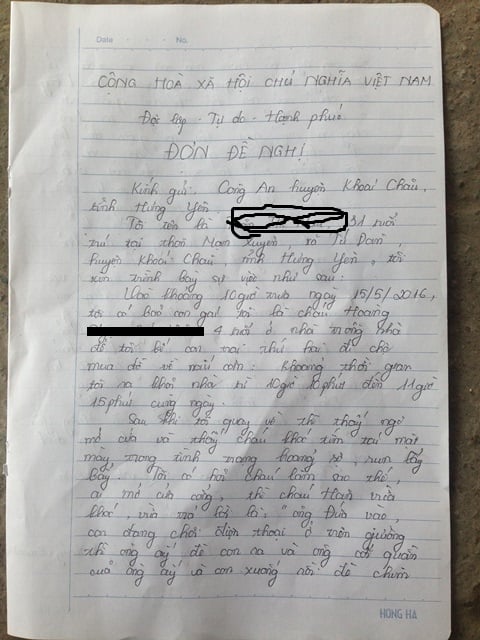 Date No.
CỘNG HOÀ XÃ HỘI CHỦ NGHĨA VIỆT NAM
Độc lập - Tự do - Hạnh phúc
ĐƠN ĐỀ NGHỊ
Kính gửi: Công An huyện Khoái Châu,
tỉnh Hưng Yên
Tôi tên là 31 tuổi
trú tại thôn Nam Xuyên, xã Tứ Dân,
huyện Khoái Châu, tỉnh Hưng Yên, tôi
xin trình bày sự việc như sau:
Vào khoảng 10 giờ trưa ngày 15/5/2016,
tôi có bảo con gái tôi là cháu Hoàng
4 tuổi ở nhà trông nhà
để tôi bế con trai thứ hai đi chợ
mua đồ về nấu cơm. Khoảng thời gian
tôi ra khỏi nhà từ 10 giờ 10 phút đến 11 giờ
15 phút cùng ngày.
Sau khi tôi quay về thì thấy ngõ
mở cửa và thấy cháu khóc tím tái mặt
mày trong tình trạng hoảng sợ, run lẩy
bẩy. Tôi có hỏi cháu làm sao thế,
ai mở cửa cổng, thì cháu vừa
khóc, vừa trả lời là: "ông vào,
con đang chơi điện thoại ở trên giường
thì ông ấy đè con ra và ông cởi quần
của ông ấy và con xuống rồi để chim
HONG HA